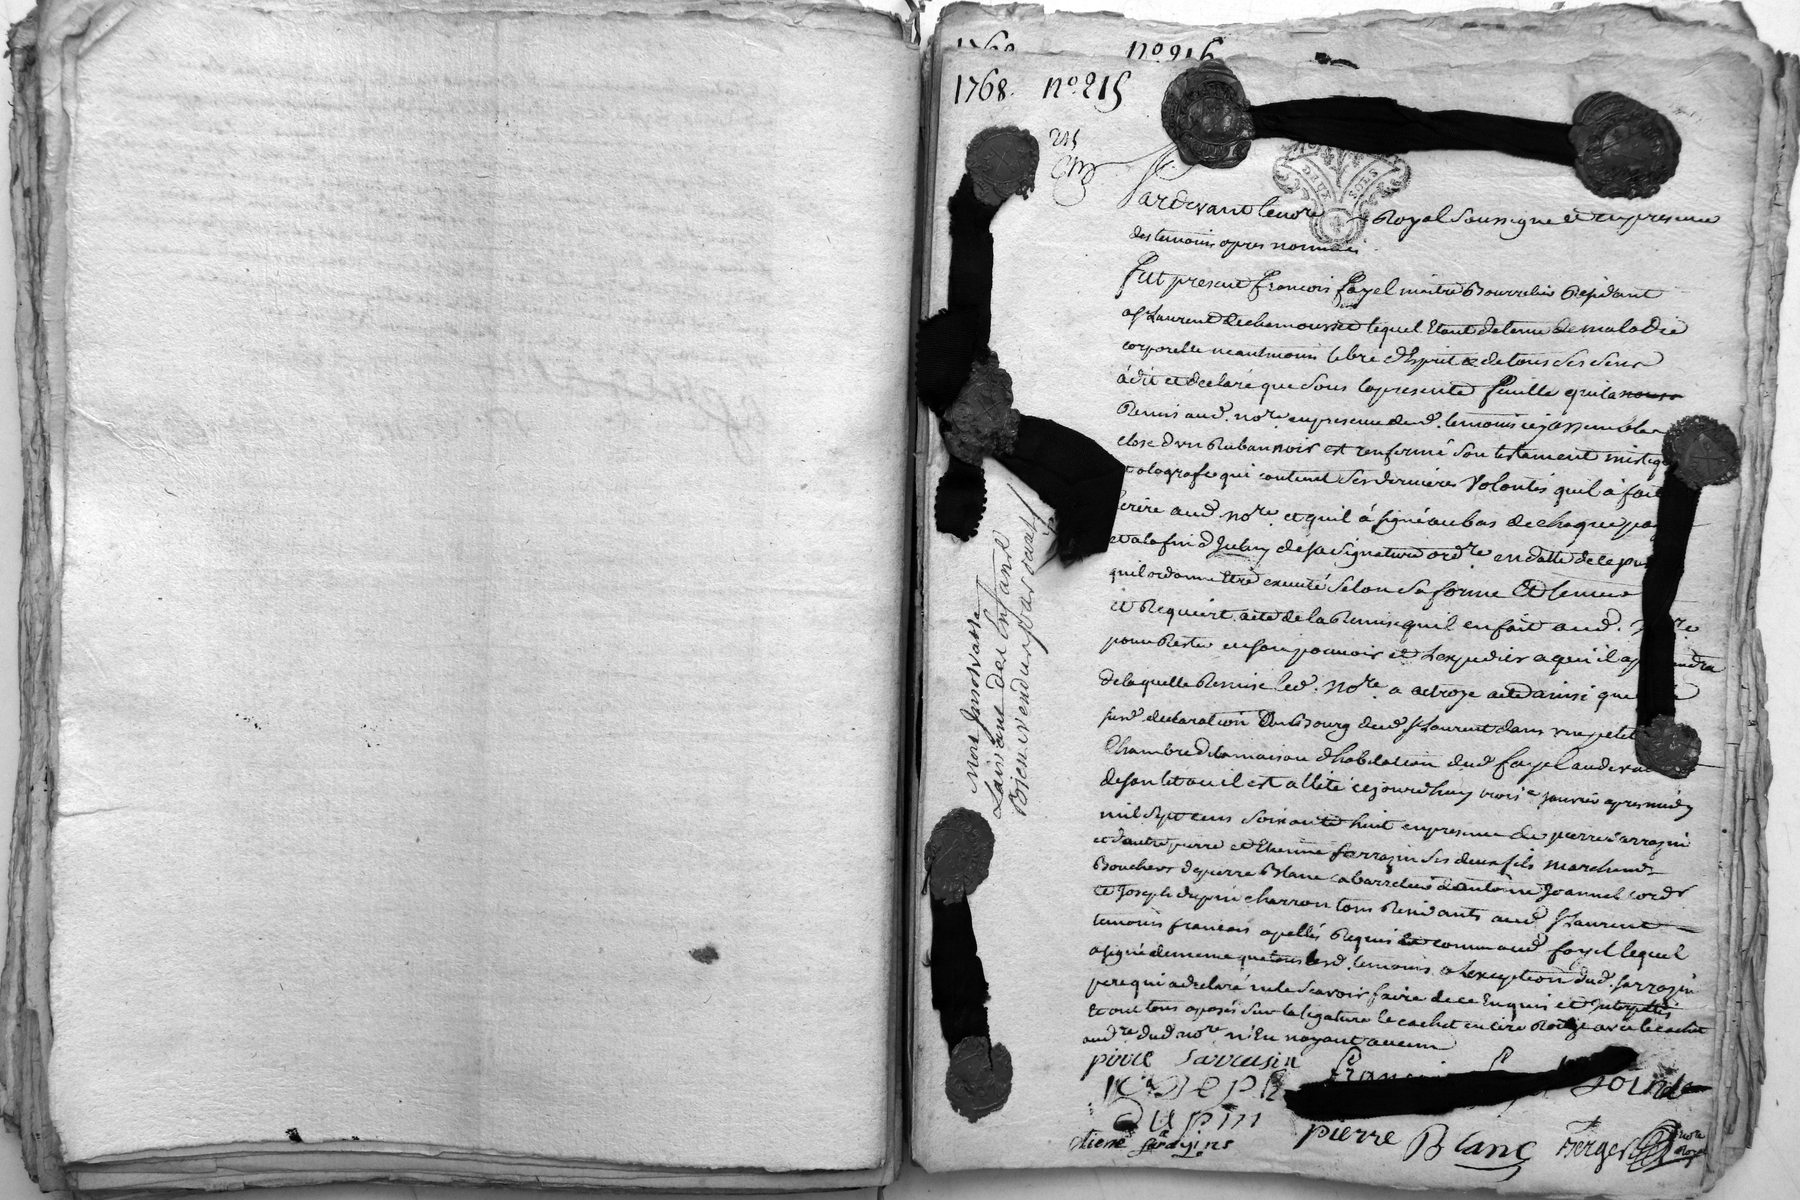 1768
nº 216
1768. nº 215
215
DEUX SOLS
Pardevant le nore Royal soussigné et en presence
des temoins apres nommés
fut present François fayel maitre Bourrelier Residant
a st Laurent de chamousset lequel Etant detenu de maladie
corporelle neantmoins libre d'Esprit & de tous ses sens
à dit et declaré que sous la presente feuille quil a
Remis aud. nore en presence desd. temoins icy assemblés
close d'vn Ruban noir est renfermé son testament mistique
et olografe qui contient ses dernieres Volontés quil à fait
Ecrire aud nore. et quil à signé au bas de chaque pag
et a la fin d'Iceluy de sa signature ordre en datte de ce jour
quil ordonne Etre executé selon sa forme Et teneur
et Requiert acte de la Remise quil en fait aud. nore
pour Rester en son pouvoir et l'expedier a qui il apartiendra
de laquelle Remise led. nore a octroyé acte ainsi que de
susd. declaration Au Bourg dud st Laurent dans vne petite
Chambre de la maison d'habitation dud fayel au devant
de son lit ou il est allité cejourdhuy troise janvier apres midy
mil sept cens soixante huit en presence de pierre sarrazin
et d'autre pierre et Etienne sarrazin ses deux fils marchands
Bouchers de pierre Blanc cabarretier d'antoine Joannel cordr
et Joseph dupin charron tous Residants aud st Laurent
temoins francois apellés Requis comme aud fayel lequel
a signé de meme que tous lesd. temoins a l'exception dud. sarrazin
pere qui a declaré ne le scavoir faire de ce Enquis et
Et ont tous aposés sur la ligature le cachet en cire Rouge avec le cachet
dud nore n'En n'ayant aucun
pierre sarrasin
Joseph
Dupin
etiene sarazin
pierre Blanc
Berger nore Royal
Mort
Laissant des Enfants
Bien vendu par